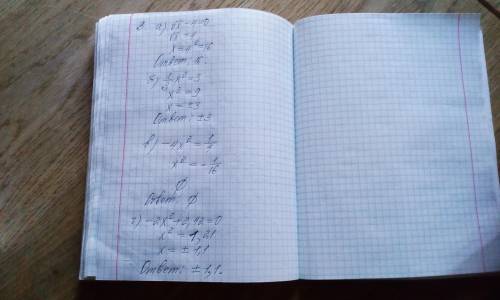 2. а) √x − 4 = 0
√x = 4
x = 4² = 16
Ответ: 16.
б) x² = 3
x² = 9
x = ±3
Ответ: ±3
в) −4x² = 1/4
x² = −1/16
∅
Ответ: ∅
г) −2x² + 2,42 = 0
x² = 1,21
x = ± 1,1
Ответ: ± 1,1.